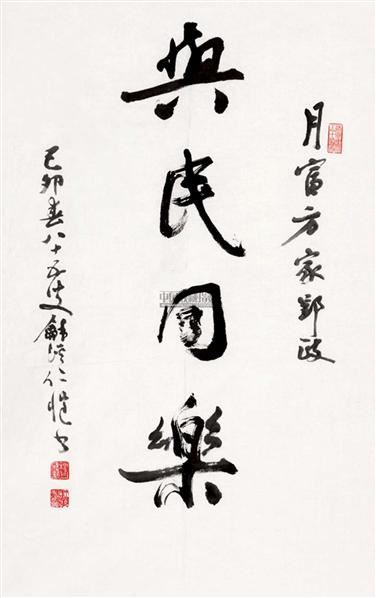 月富方家郢政
與民同樂
己卯春八十五叟龢溪仁愷书